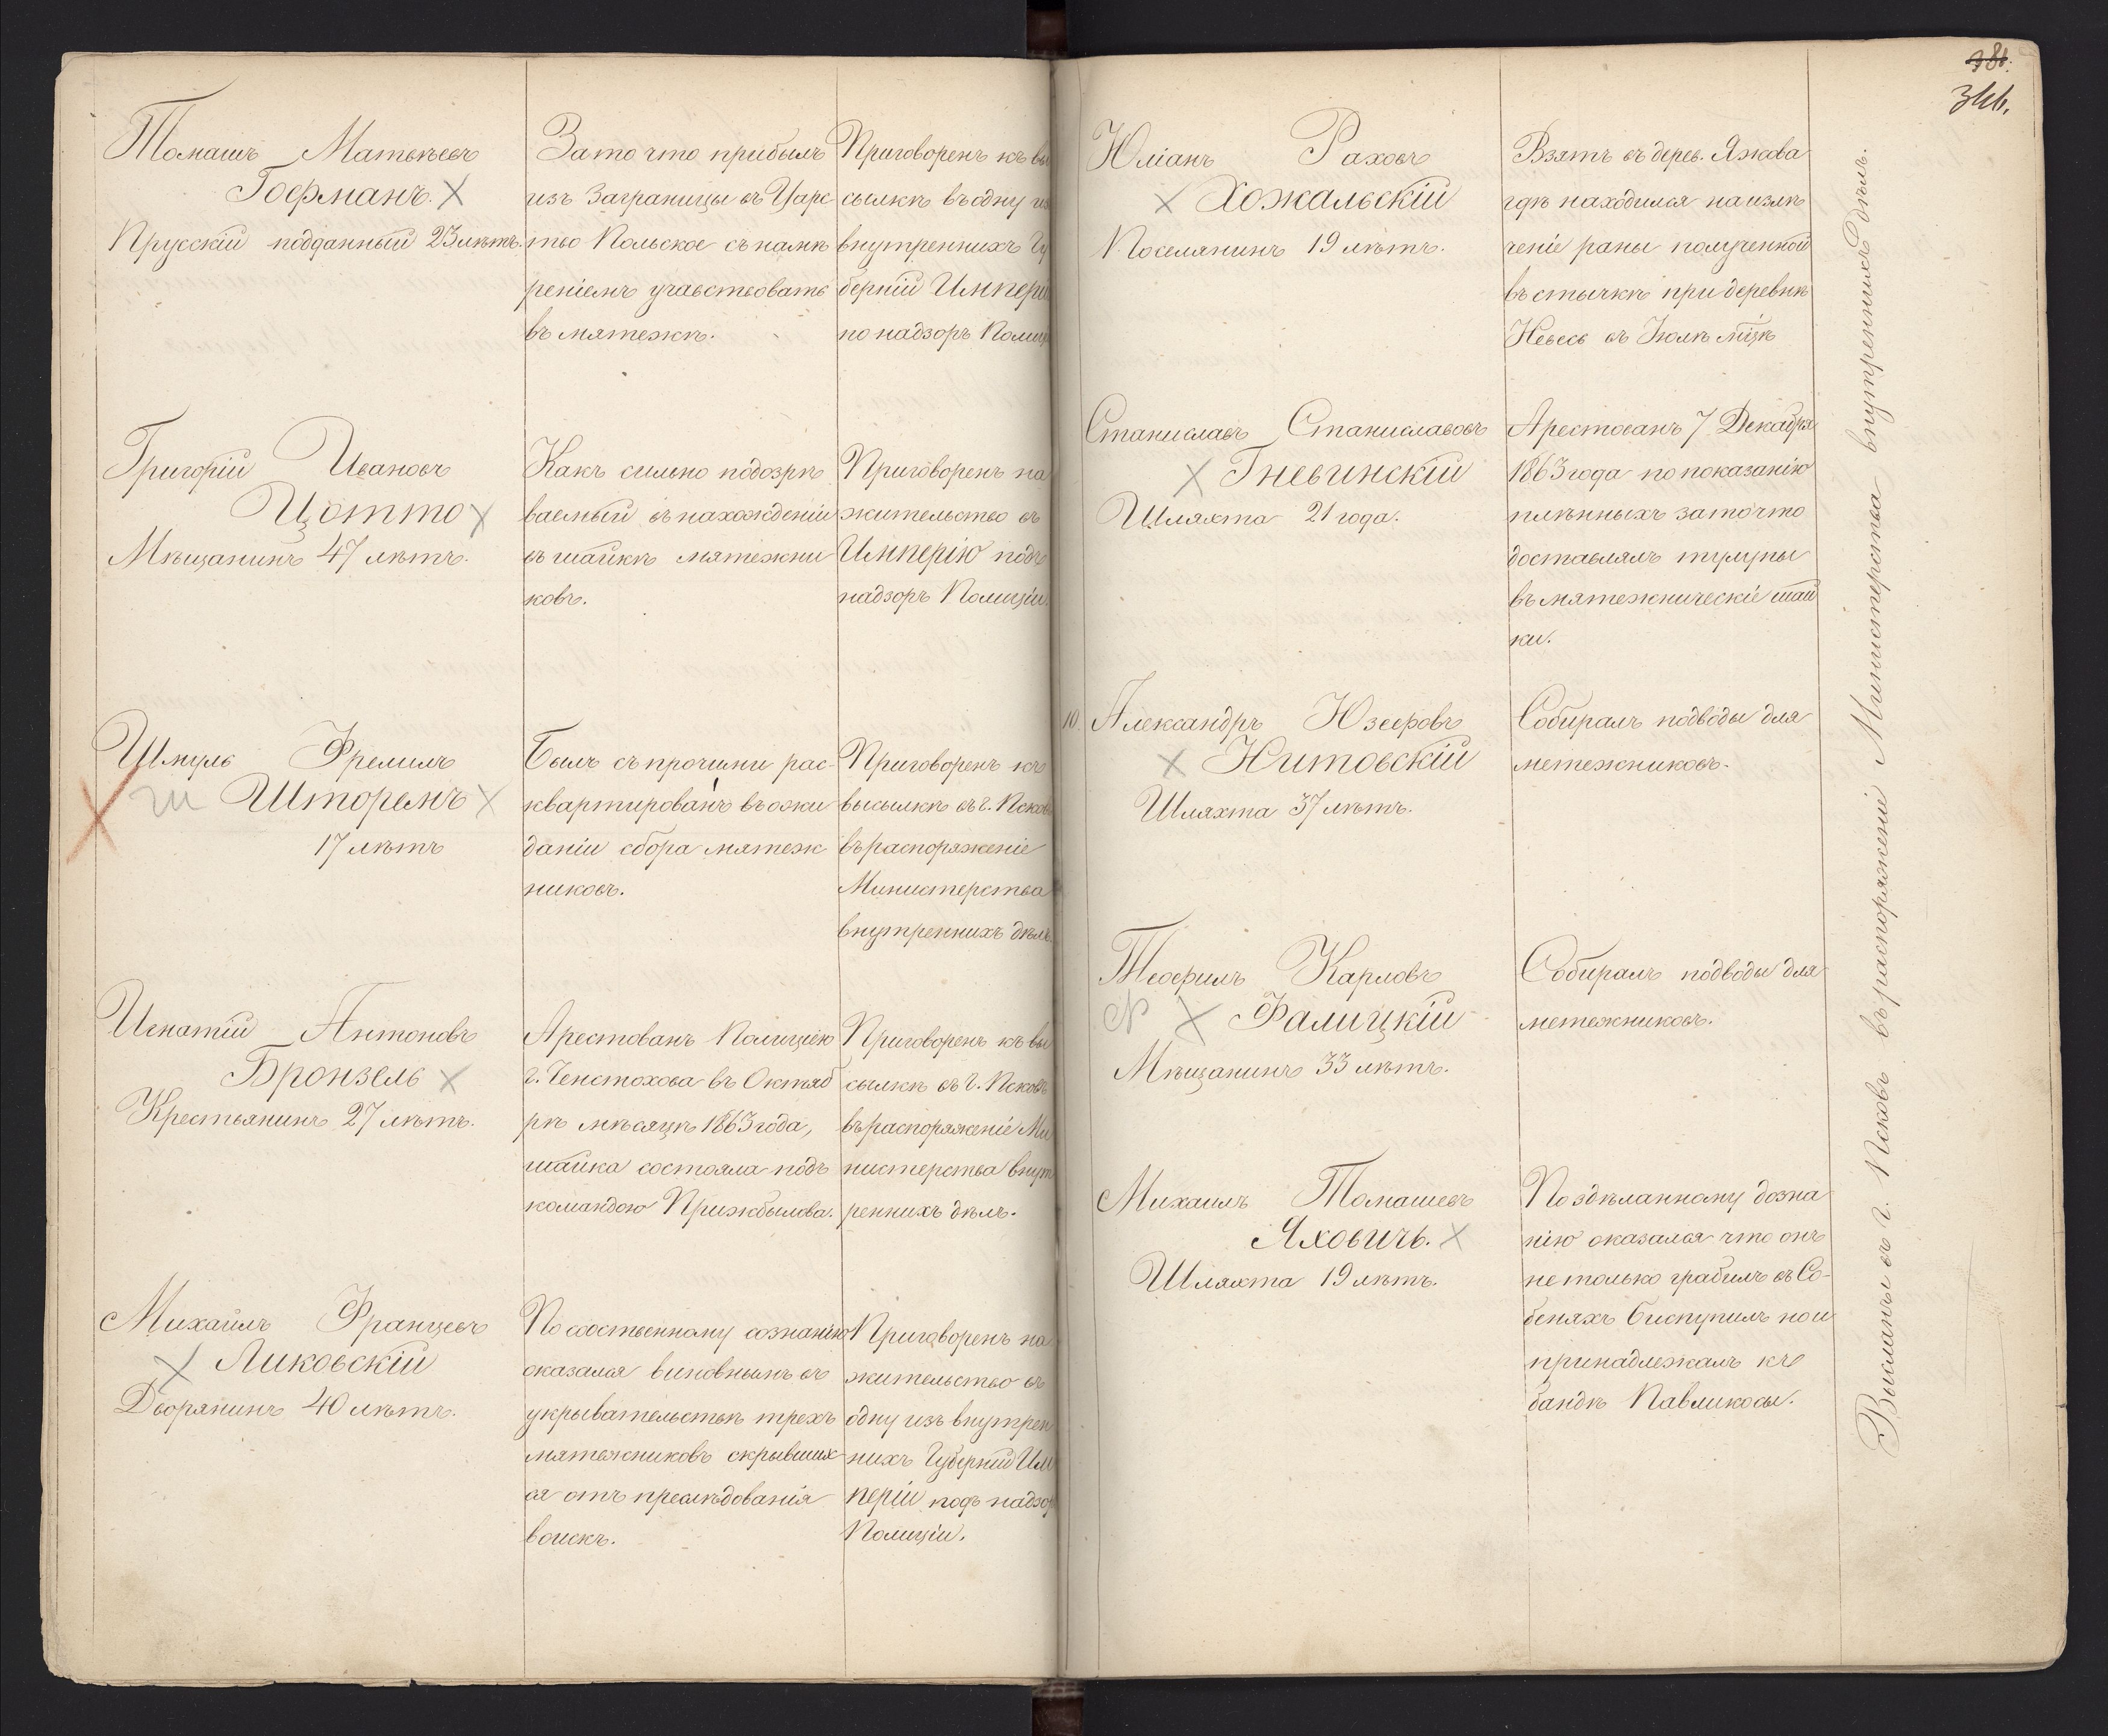 Томашъ Матвѣевъ
Гофманъ.
Прусскій подданный 23 лѣтъ.
За то что прибылъ
изъ Заграницы въ Царс
тво Польское съ намѣ
реніемъ учавствовать
въ мятежѣ.
Приговоренъ къ вы
сылкѣ въ одну из
внутреннихъ Гу
берній Импері
по надзоръ Полиц
Григорій Ивановъ
Цотто
Мѣщанинъ 47 лѣтъ.
Какъ сильно подозрѣ
ваемый въ нахожденіи
въ шайкѣ мятежни
ковъ.
Приговоренъ на
жительство въ
Имперію подъ
надзоръ Полиціи.
Шмуль Фремилъ
ш Шторемъ
17 лѣтъ
Былъ съ прочими рас-
квартированъ въ ожи
даніи сбора мятеж
никовъ.
Приговоренъ къ
высылкѣ въ г. Псковъ
въ распоряженіе
Министерства
внутреннихъ дѣлъ.
Игнатій Антоновъ
Бронзель
Крестьянинъ 27 лѣтъ.
Арестованъ Полиціею
г. Ченстохова въ Октяб
рѣ мѣсяцѣ 1863 года,
шайка состояла подъ
командою Прижбылова.
Приговоренъ къ вы
сылкѣ въ г. Псковъ
въ распоряженіе Ми
нистерства внут
реннихъ дѣлъ.
Михаилъ Францевъ
Ликовскій
Дворянинъ 40 лѣтъ.
По собственному сознанію
оказался виновнымъ въ
укрывательствѣ трехъ
мятежниковъ скрывших
ся отъ преслѣдованія
воискъ.
Приговоренъ на
жительство въ
одну изъ внутрен
нихъ Губерній Им
періи подъ надзор
Полиціи.
381.
Юліанъ Раховъ
Хожальскій
Поселянинъ 19 лѣтъ.
Взятъ въ дерев. Яжова
гдѣ находился на излѣ
ченіе раны полученной
въ стычкѣ при деревнѣ
Невесь въ Іюлѣ мцѣ
Станиславъ Станиславовъ
Гневинскій
Шляхта 21 года.
Арестованъ 7 Декабря
1863 года по показанію
плѣнныхъ за то что
доставлялъ тулупы
въ мятежническіе шай
ки.
10. Александръ Юзефовъ
Нитовскій
Шляхта 37 лѣтъ.
Собиралъ подводы для
метежниковъ.
Теофилъ Карловъ
Фалицкій
Мѣщанинъ 33 лѣтъ.
Собиралъ подводы для
метежниковъ.
Михаилъ Томашевъ
Яховичъ.
Шляхта 19 лѣтъ.
По здѣланному дозна
нію оказался что онъ
не только грабилъ въ Со-
беняхъ Биспупилъ но и
принадлежалъ къ
бандѣ Павликовы.
Высланъ въ г. Псковъ въ распоряженіе Министерства внутреннихъ дѣлъ.